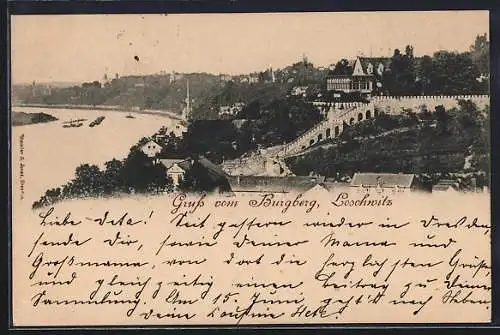 Gruß vom Burgberg, Loschwitz
Liebe Deta! Seit gestern wieder in Dresden,
sende Dir, sowie Deiner Mama und
Großmama, von dort die herzlichsten Grüße
und gleichzeitig einen Beitrag zu Deiner
Sammlung. Am 15. Juni geht's nach
Deine Cousine